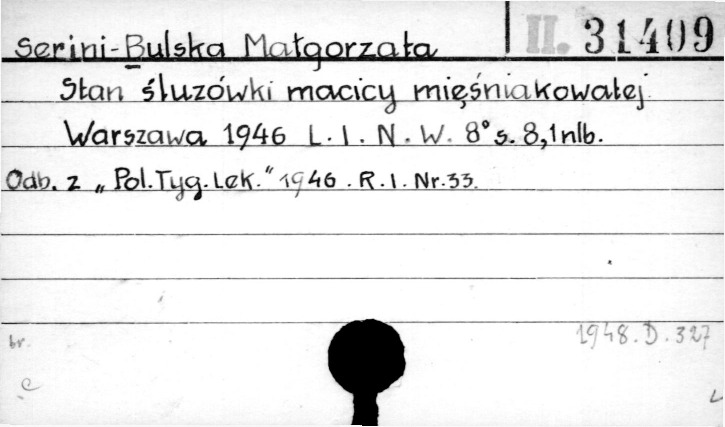 Serini-Bulska Małgorzata
II. 31409
Stan śluzówki macicy mięśniakowatej.
Warszawa 1946 L.I.N.W. 8° s. 8, 1 nlb.
Odb. z „Pol. Tyg. Lek." 1946. R.I. Nr. 33.
br.
1948.D.327
e
L